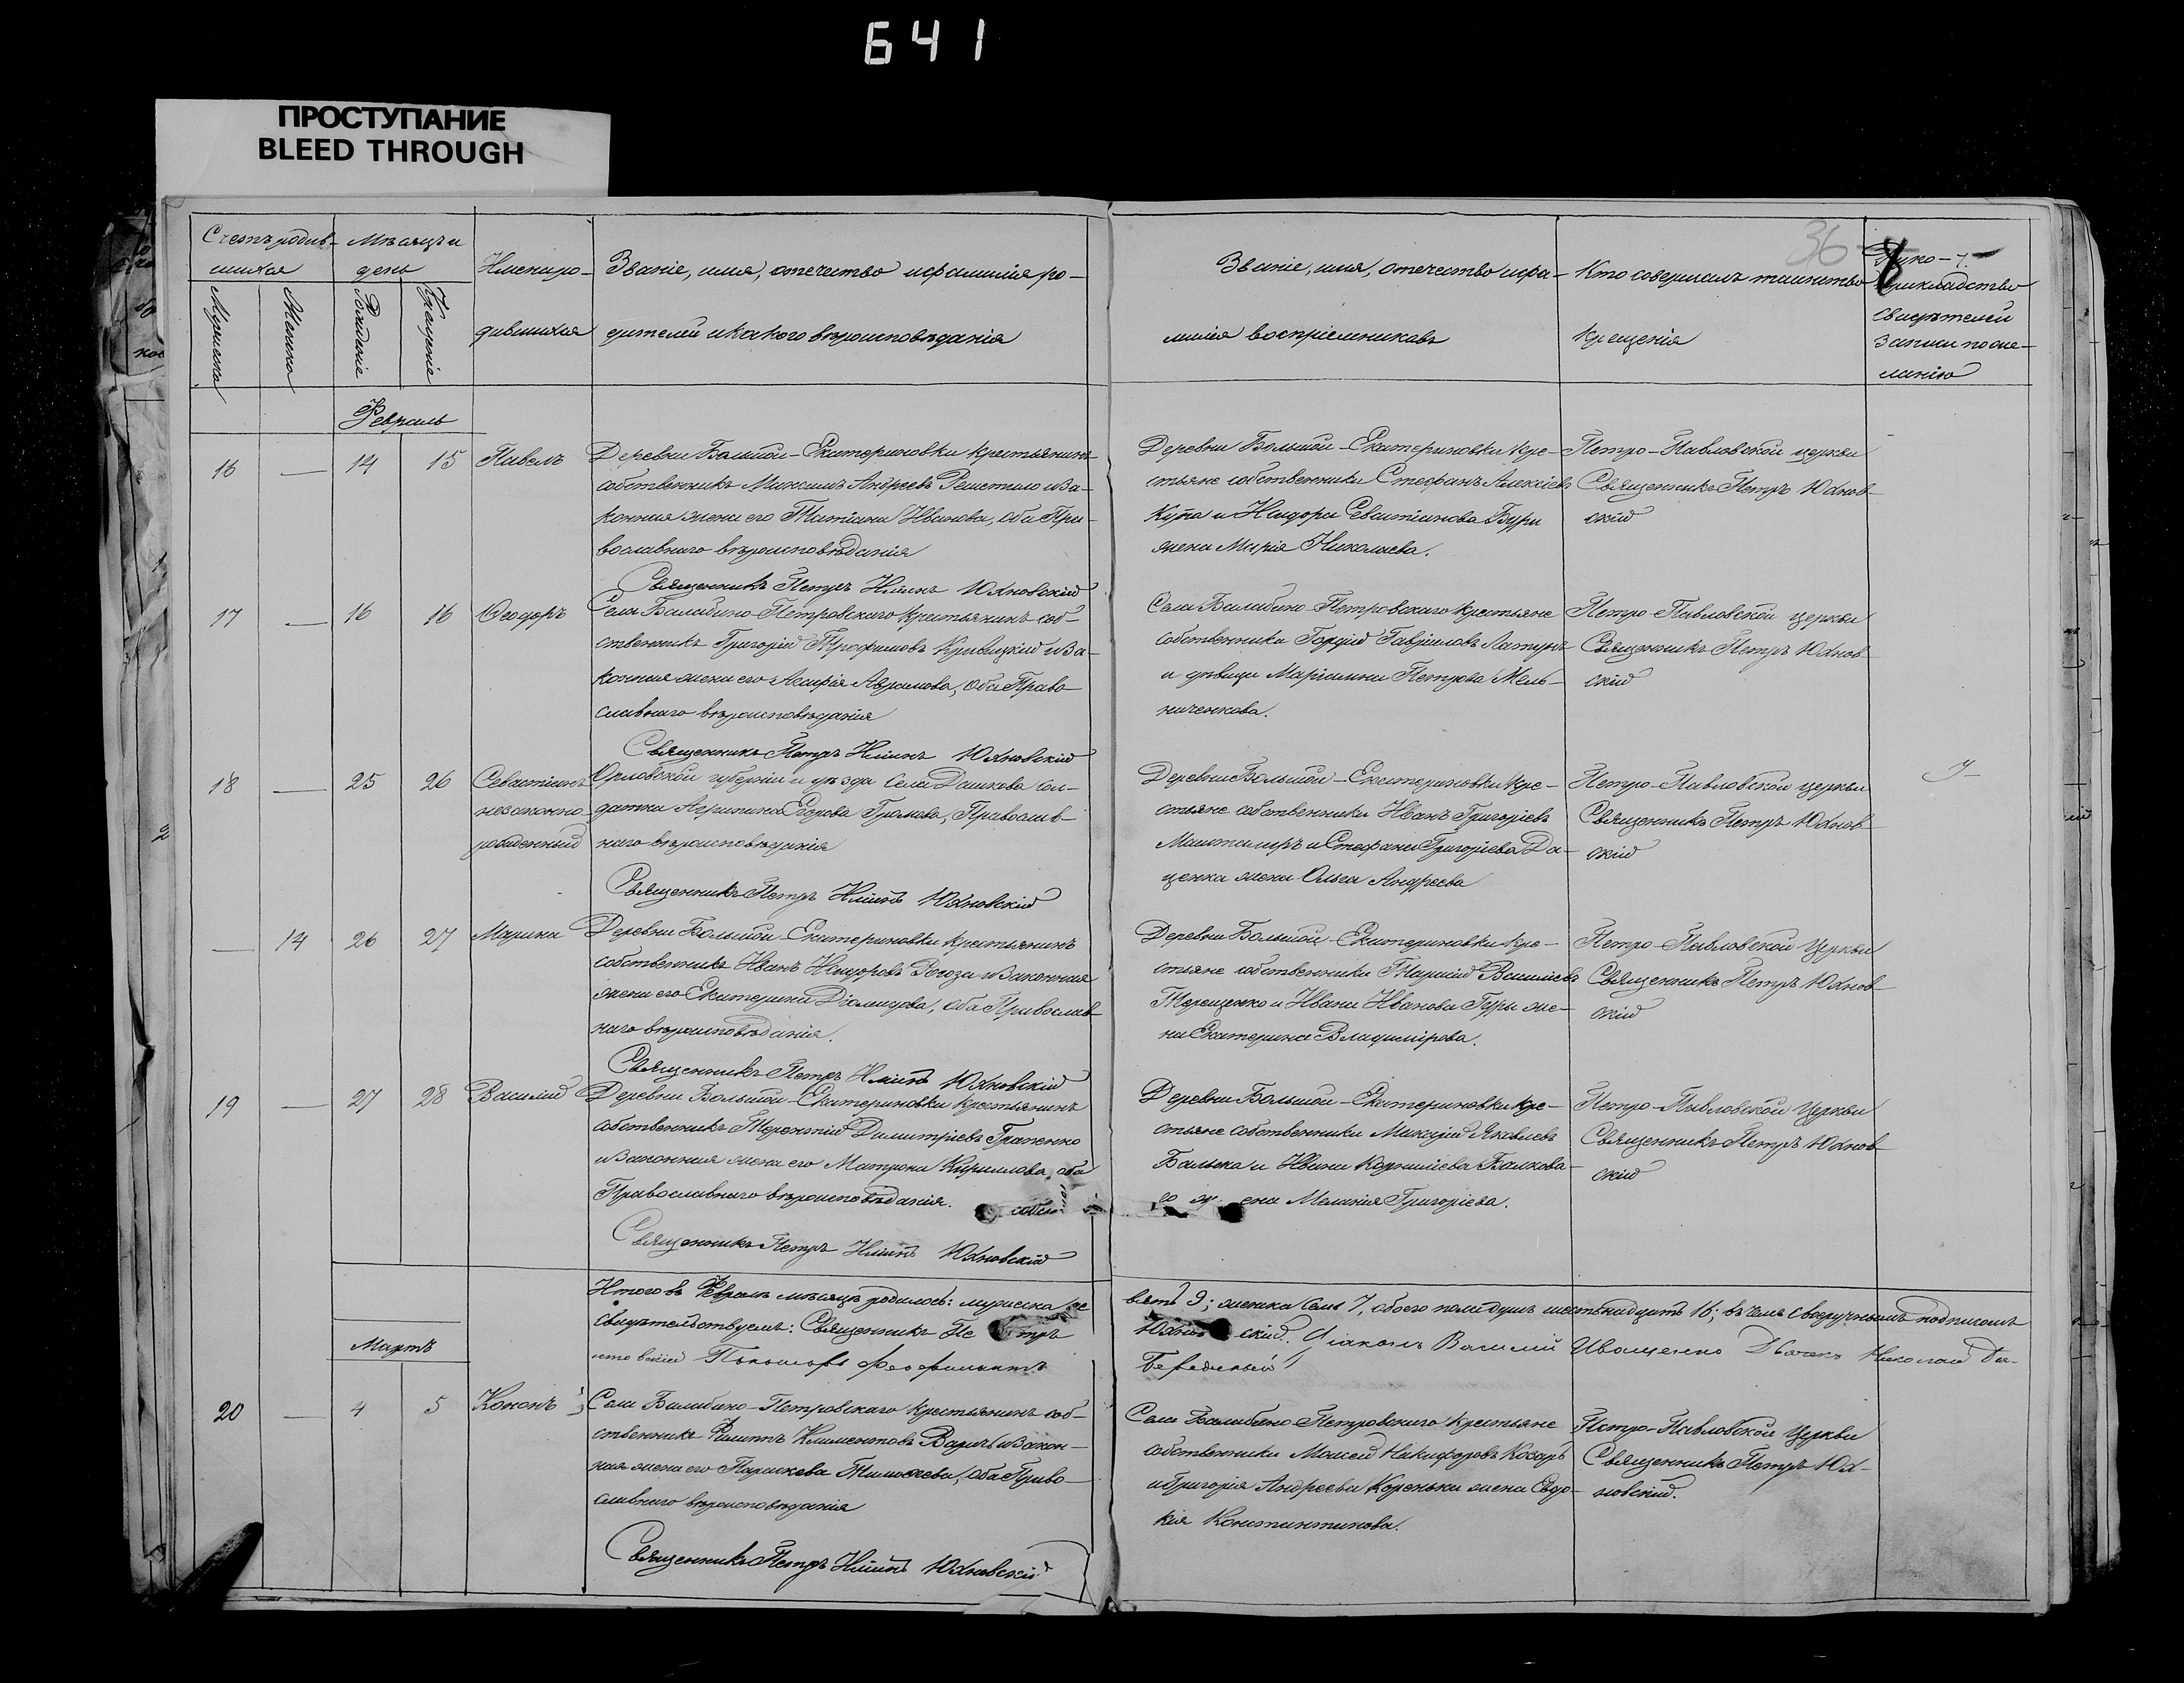 641
ПРОСТУПАНИЕ
BLEED THROUGH
36
Счетъ родив-
шихся
Мужеска
Женска
Мѣсяцъ и
день
Рожденія
Крещенія
Имена ро-
дившихся
Званіе, имя, отечество и фамилія ро-
дителей и какого вѣроисповѣданія
Званіе, имя, отечество и фа-
милія воспріемниковъ
Кто совершалъ таинство
крещенія
Руко-
прикладство
свидѣтелей
записи по же-
ланію
Февраль
16 — 14 15 Павелъ
Деревни Большой-Екатериновки крестьянинъ
собственникъ Максимъ Андреевъ Решетило и за-
конная жена его Татіана Иванова, оба Пра-
вославнаго вѣроисповѣданія
Священникъ Петръ Юхновскій
Деревни Большой-Екатериновки кре-
стьяне собственники Стефанъ Алексіевъ
и Исидора Севастіанова Буры
жена Марія Николаева.
Петро-Павловской церкви
Священникъ Петръ Юхнов-
скій
17 — 16 16 Ѳеодоръ
Села Балабино-Петровскаго крестьянинъ соб-
ственникъ Григорій Трофимовъ Кривицкій и за-
конная жена его Агафія Аврамова, оба Право-
славнаго вѣроисповѣданія
Священникъ Петръ Юхновскій
Села Балабино-Петровскаго крестьяне
собственники Гордій Гавріиловъ
и дѣвица Маріамна Петрова Мель-
ниченкова.
Петро-Павловской церкви
Священникъ Петръ Юхнов-
скій
18 — 25 26 Севастіанъ
незаконно-
рожденный
Орловской губерніи и уѣзда села Дашкова сол-
датка Агрипина Егорова Громова, Православ-
наго вѣроисповѣданія
Священникъ Петръ Юхновскій
Деревни Большой-Екатериновки кре-
стьяне собственники Иванъ Григоріевъ
и Стефана Григоріева Да-
ценка жена Ольга Андреева
Петро-Павловской церкви
Священникъ Петръ Юхнов-
скій
— 14 26 27 Марина
Деревни Большой-Екатериновки крестьянинъ
собственникъ Иванъ Исидоровъ Рогоза и законная
жена его Екатерина Діомидова, оба Православ-
наго вѣроисповѣданія.
Священникъ Петръ Юхновскій
Деревни Большой-Екатериновки кре-
стьяне собственники Тарасій Василіевъ
Терещенко и Ивана Иванова Гуры же-
на Екатерина Владимірова.
Петро-Павловской Церкви
Священникъ Петръ Юхнов-
скій
19 — 27 28 Василій
Деревни Большой-Екатериновки крестьянинъ
собственникъ Терентій Димитріевъ Гапенко
и законная жена его Матрона Кириллова, оба
Православнаго вѣроисповѣданія.
Священникъ Петръ Юхновскій
Деревни Большой-Екатериновки кре-
стьяне собственники Яковлевъ
и Ивана Корниліева
жена Меланія Григоріева.
Петро-Павловской Церкви
Священникъ Петръ Юхнов-
скій
Итого въ Февралѣ мѣсяцѣ родилось: мужеска де
вять 9; женска семь 7, обоего пола душъ шестьнадцать 16; въ чемъ своеручнымъ подписомъ
свидѣтельствуемъ: Священникъ Пе тръ
Юхнов скій. Діаконъ Василій Иващенко Дьячекъ Николай
Пономарь
Мартъ
20 — 4 5 Кононъ
Села Балабино-Петровскаго крестьянинъ соб-
ственникъ Филиппъ Климентовъ и закон-
ная жена его Параскева Тимоѳеева, оба Право-
славнаго вѣроисповѣданія
Священникъ Петръ Юхновскій
Села Балабино-Петровскаго крестьяне
собственники Моисей Никифоровъ Козарь
и Григорія Андреева Кореньки жена Евдо-
кія Константинова.
Петро-Павловской Церкви
Священникъ Петръ Юх-
новскій.